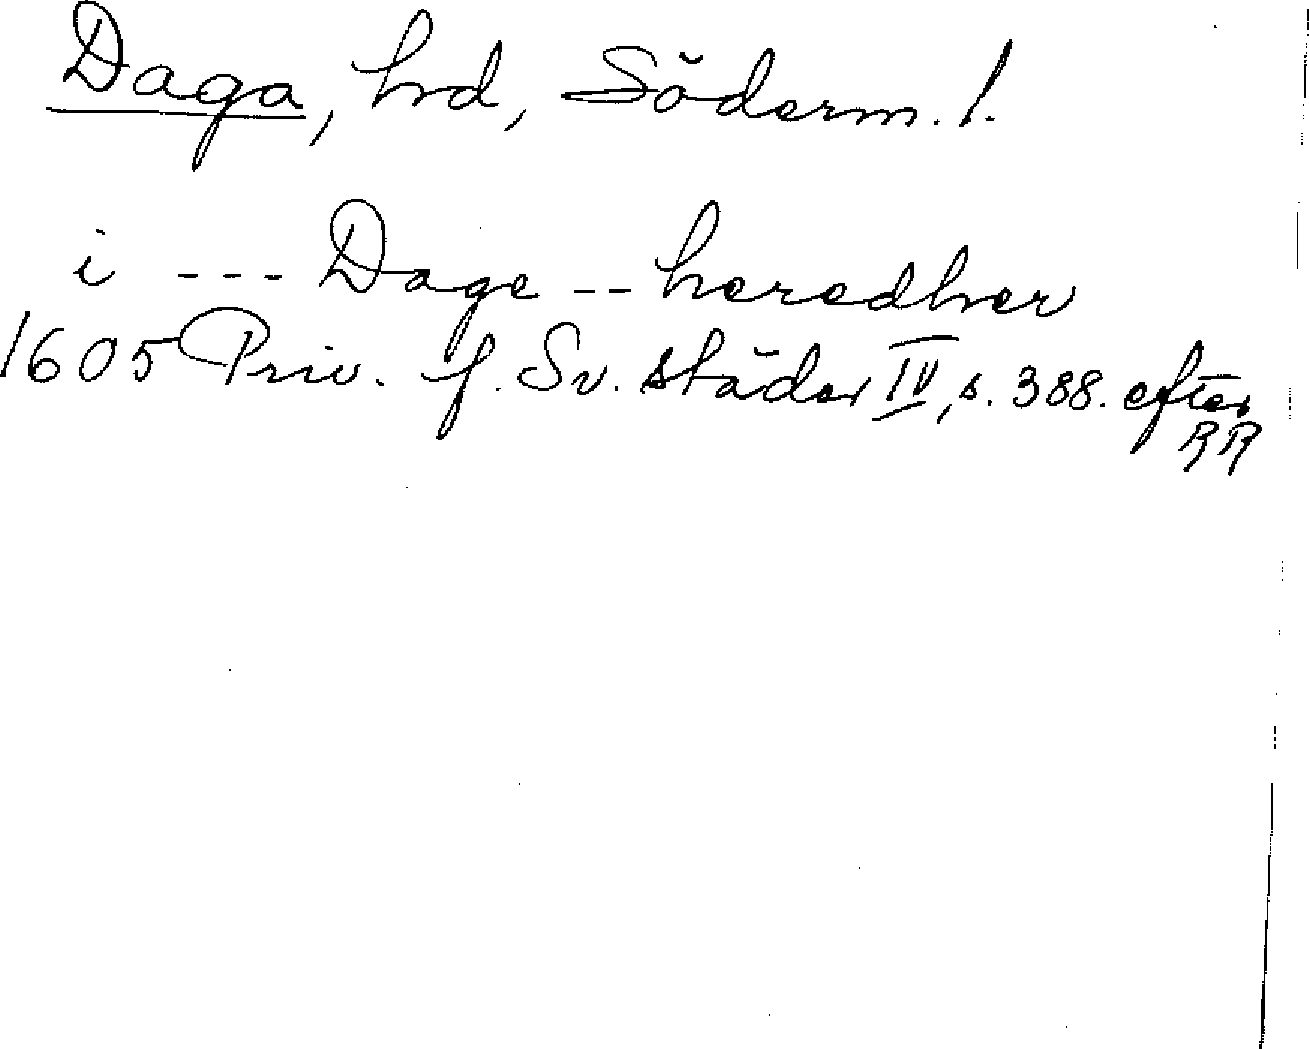 Daga, hd, Söderm. l.
i --- Dage -- heredher
1605 Priv. f. Sv. städer IV, s. 388. efter
RR